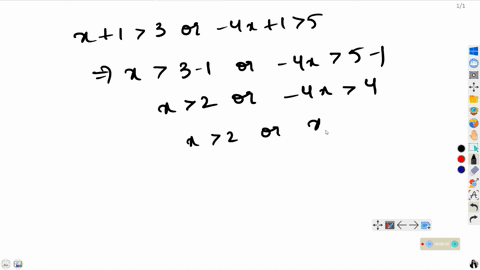 1/1
x+1>3 or -4x+1>5
⇒ x > 3-1 or -4x > 5-1
x>2 or -4x>4
x>2 or x